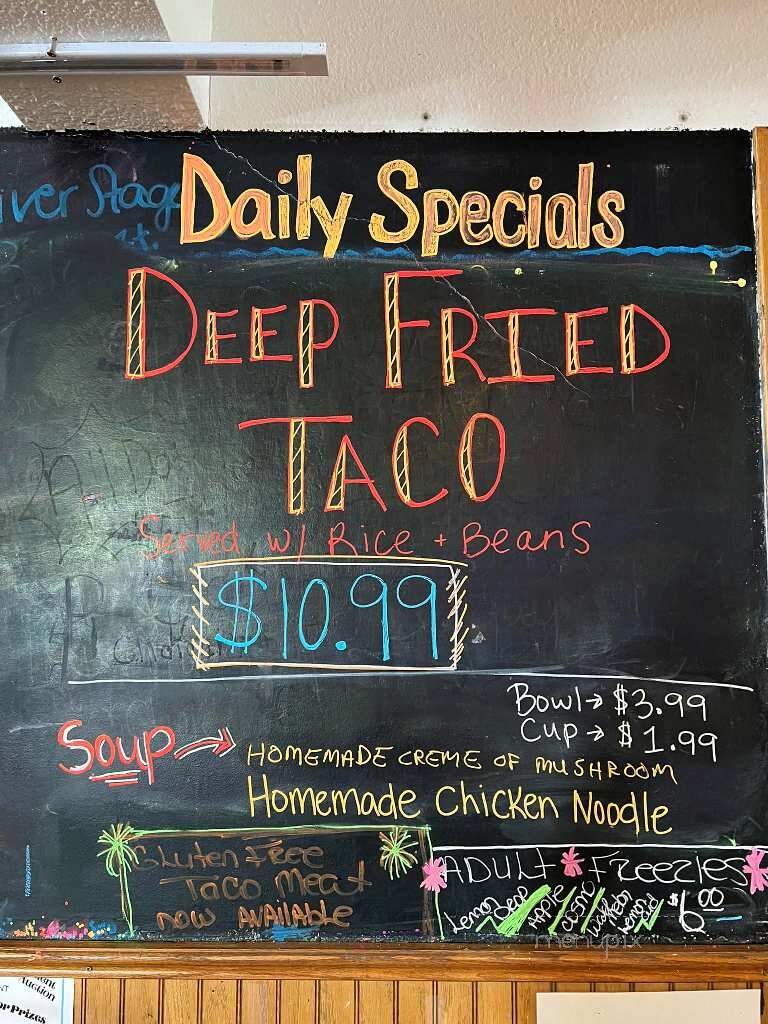 River Stage
Daily Specials
DEEP FRIED
TACO
Served w/ Rice + Beans
$10.99
Bowl → $3.99
Cup → $1.99
Soup →
HOMEMADE CREME OF MUSHROOM
Homemade Chicken Noodle
Gluten Free
Taco Meat
NOW AVAILABLE
ADULT FREEZIES
Lemon Drop
APPLE
COSMO
$6.00
menupix
Auction
or Prizes